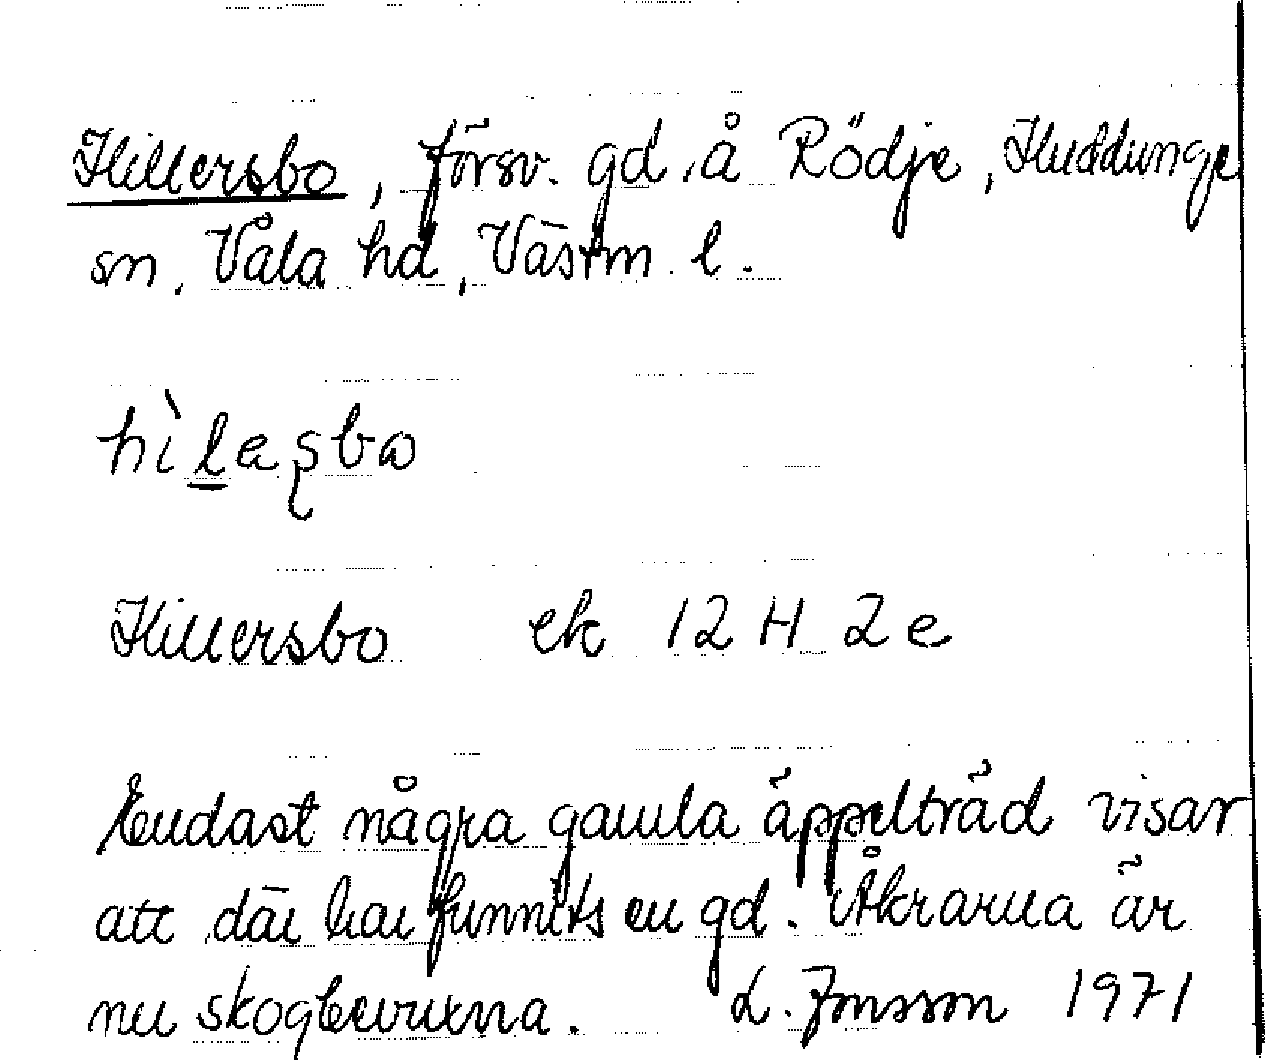 Hillersbo, försv. gd å Rödje, Huddunge
sn, Våla hd, Västm. l.
hìlaʂbo
Hillersbo ek 12 H 2 e
Endast några gamla äppelträd visar
att där har funnits en gd. Åkrarna är
nu skogbevuxna. L. Jonsson 1971